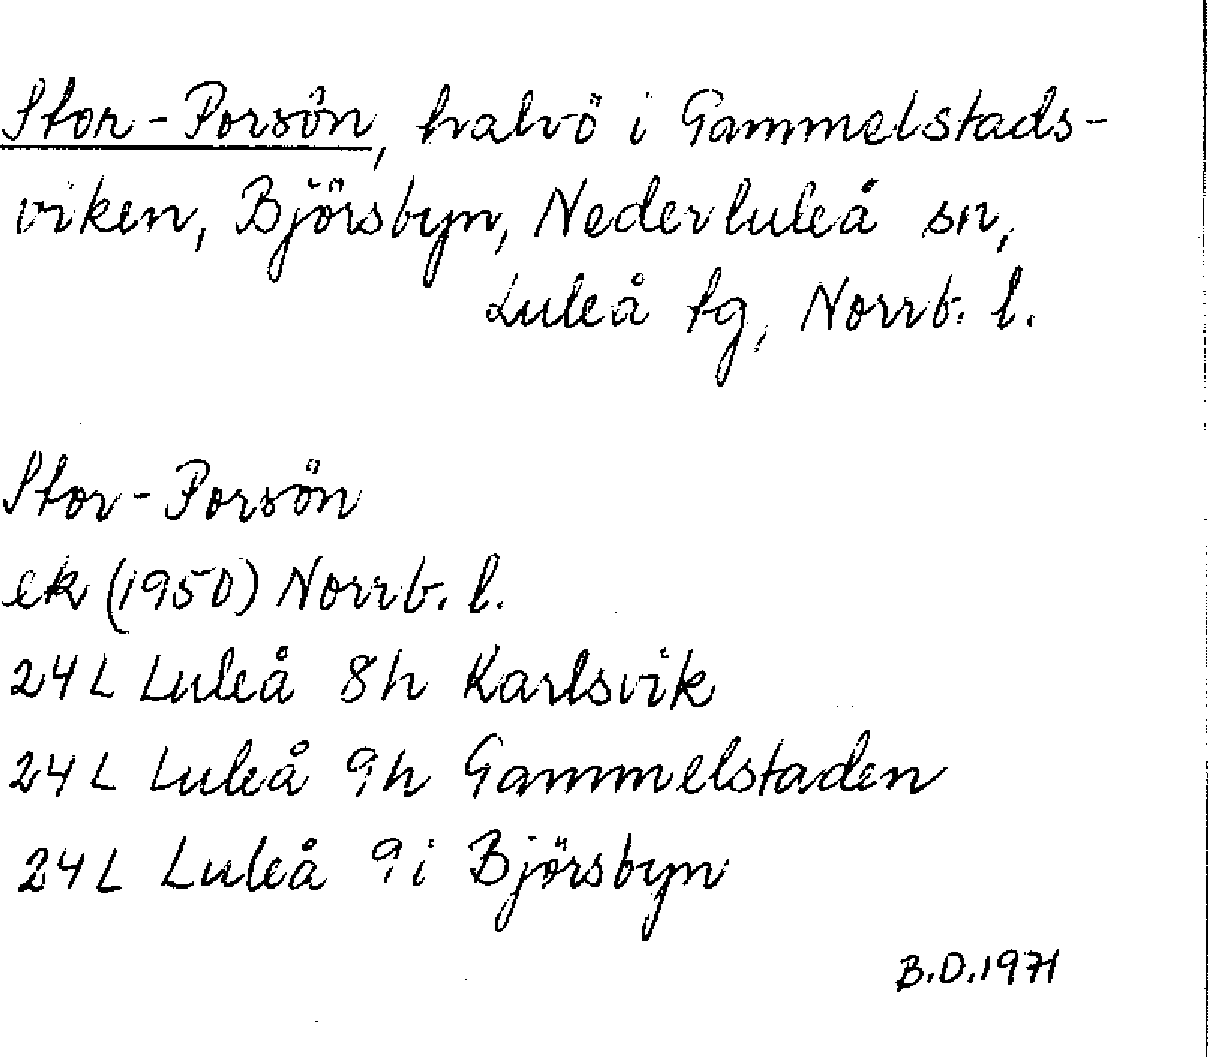 Stor-Porsön, halvö i Gammelstads-
viken, Björsbyn, Nederluleå sn,
Luleå tg, Norrb. l.
Stor-Porsön
ek (1950) Norrb. l.
24L Luleå 8h Karlsvik
24L Luleå 9h Gammelstaden
24L Luleå 9i Björsbyn
B.D.1971